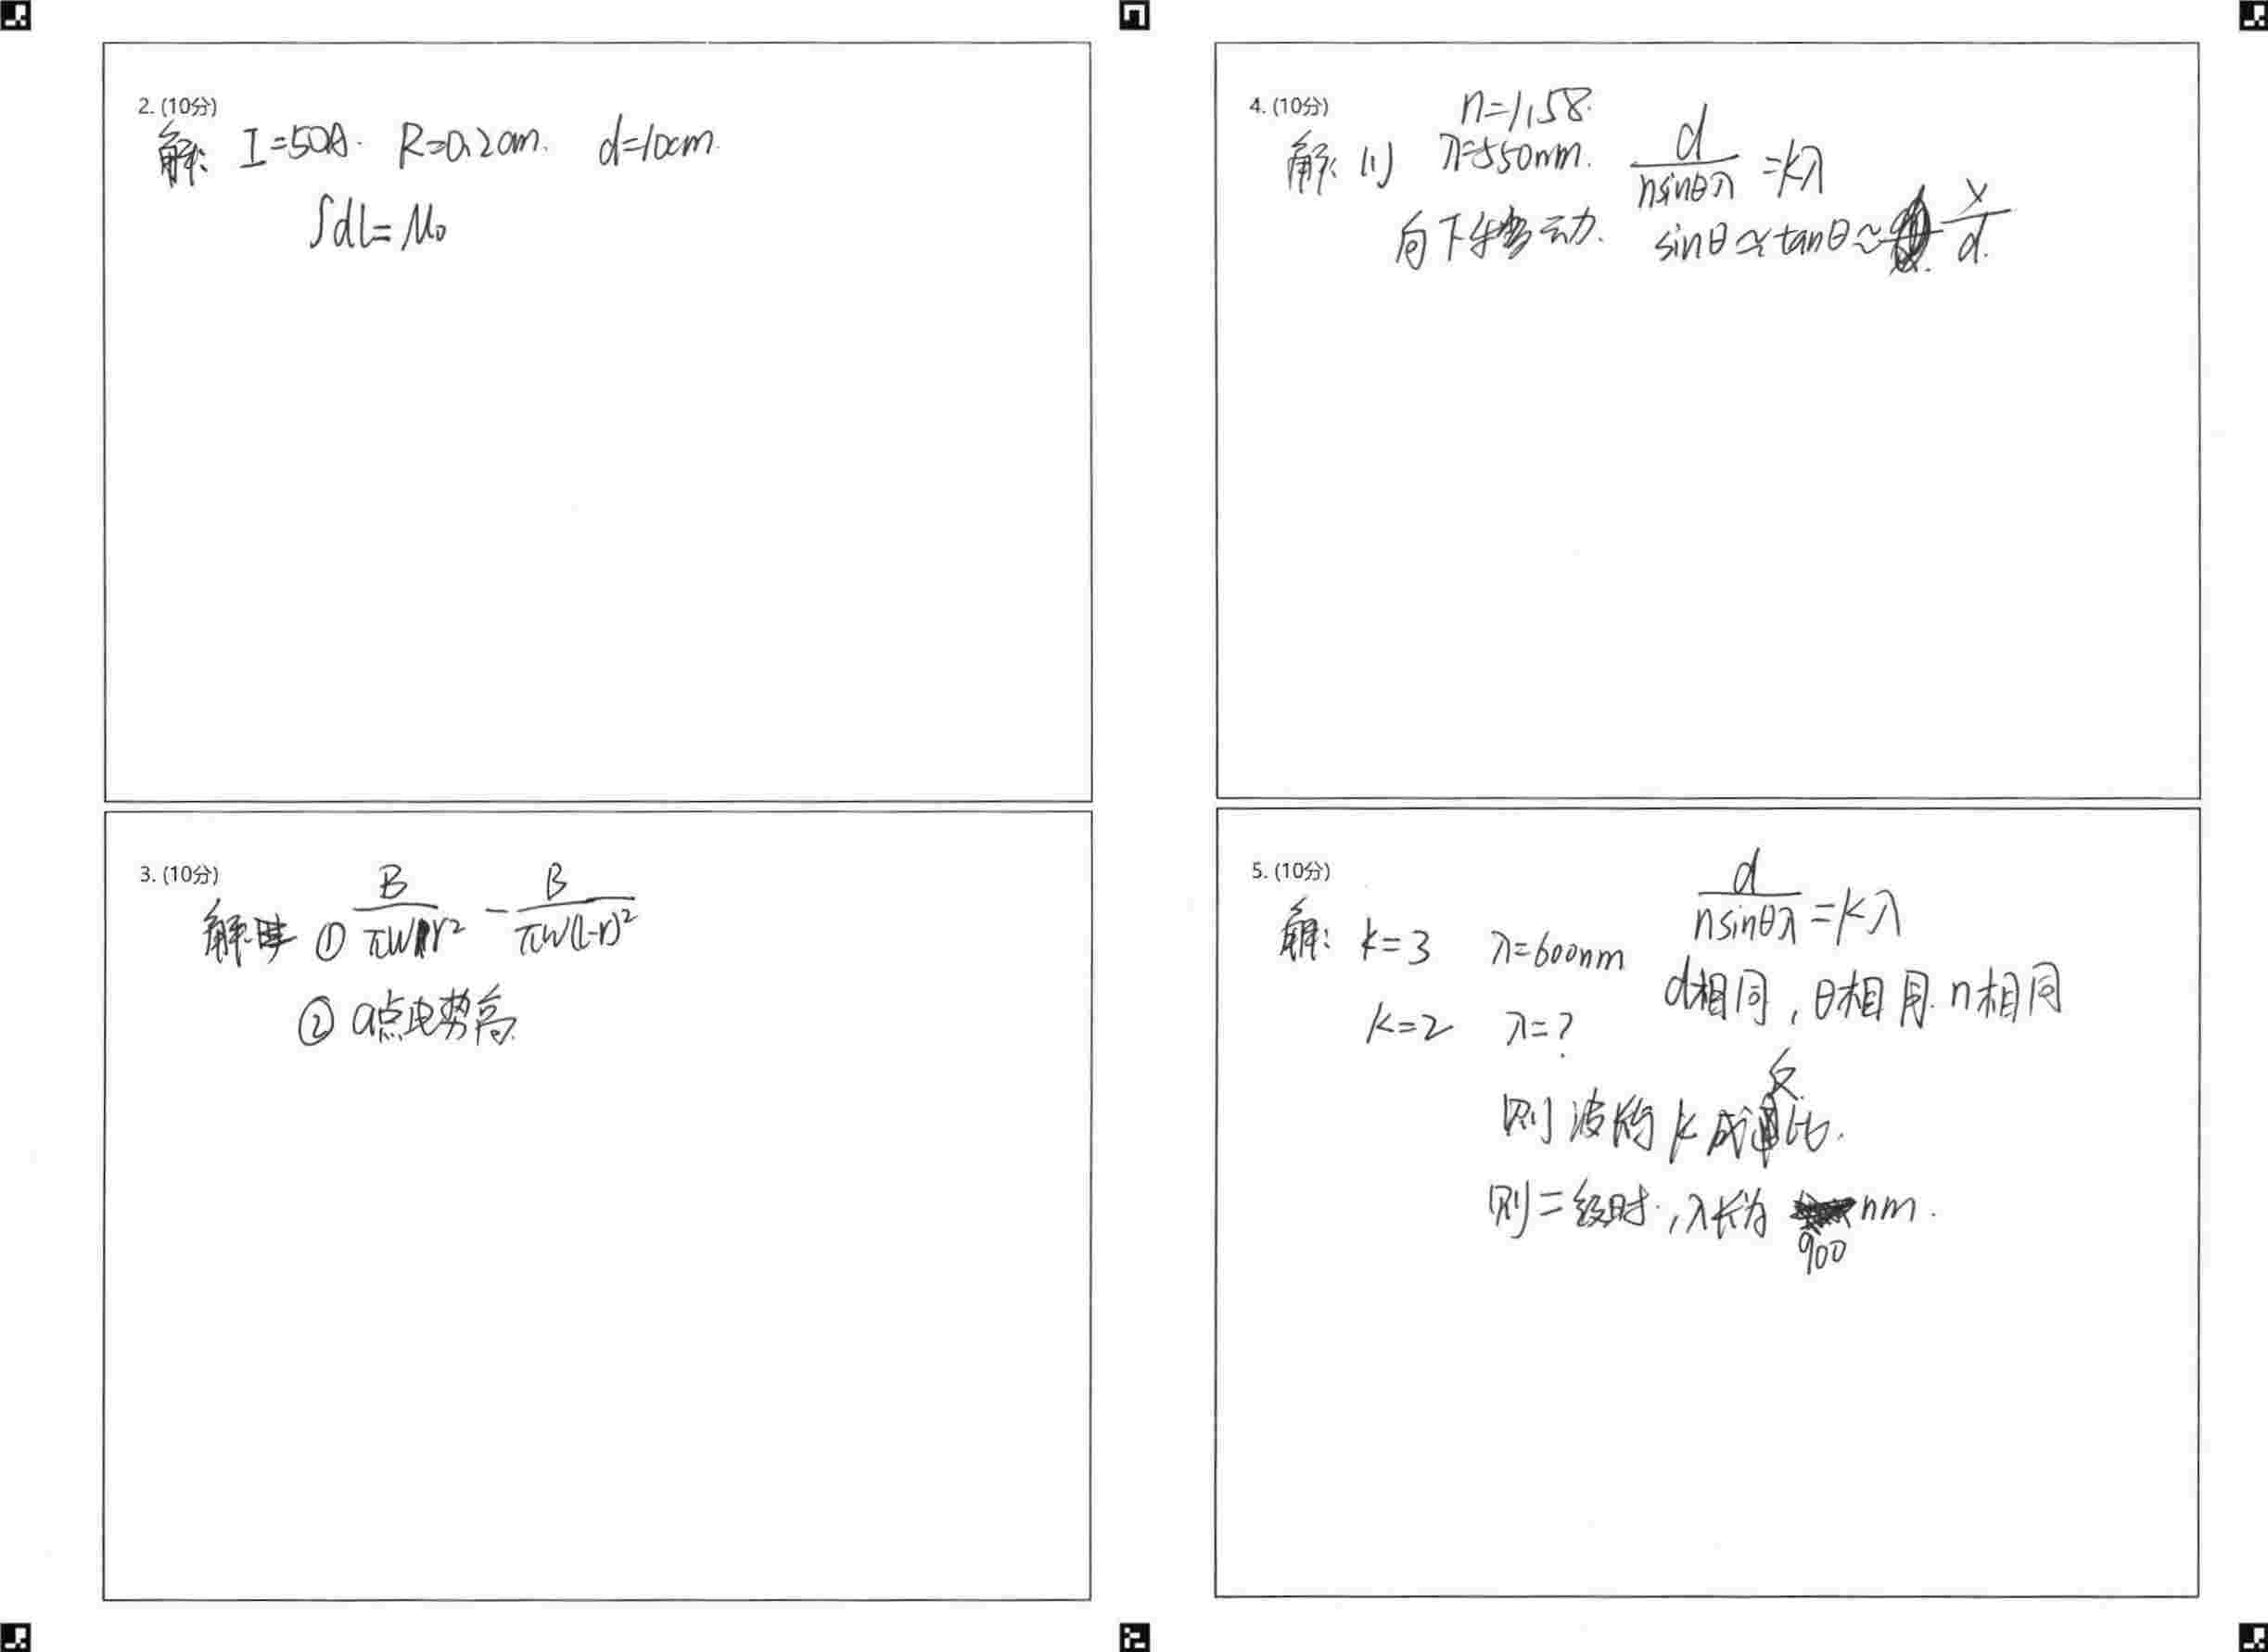 2. (10分)
解: I=50A. R=0.20m. d=10cm.
∫dl=μ₀
3. (10分)
解: ① B/πWr² - B/πW(L-r)²
② a点电势高.
4. (10分)
n=1.58.
解: (1) λ=550nm. d/nsinθλ =kλ
向下移动. sinθ≈tanθ≈ x/d.
5. (10分)
解: k=3 λ=600nm d/nsinθλ =kλ
d相同,θ相同.n相同
k=2 λ=?
则波长与k成反比.
则二级时,λ长为900nm.